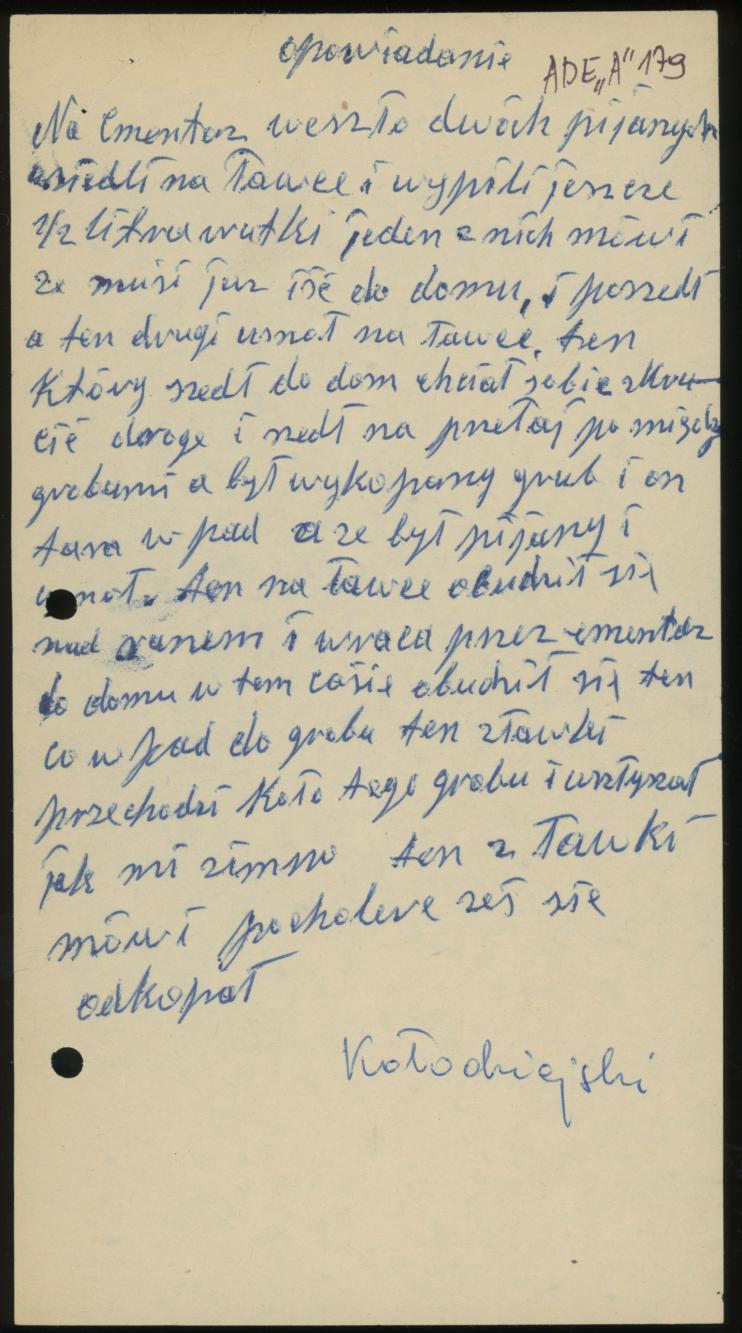 opowiadanie
ADE„A" 179
Na Cmentaz weszło dwóch pijanych
usiedli na ławce i wypili jeszcze
1/2 litra wutki jeden z nich mówi
ze musi juz iść do domu, i poszedł
a ten drugi usnoł na ławce. ten
który szedł do dom chciał sobie skru-
cić droge i szedł na przełaj po między
grobami a był wykopany grub i on
tam w pad a ze był pijany i
usnoł. ten na ławce obudził się
nad ranem i wraca przez cmentaz
do domu w tem casie obudził się ten
co w pad do grobu ten z ławki
przechodzi koło tego grobu i usłyszał
jak mi zimno ten z ławki
mówi pocholere ześ sie
odkopoł
Kołodziejski